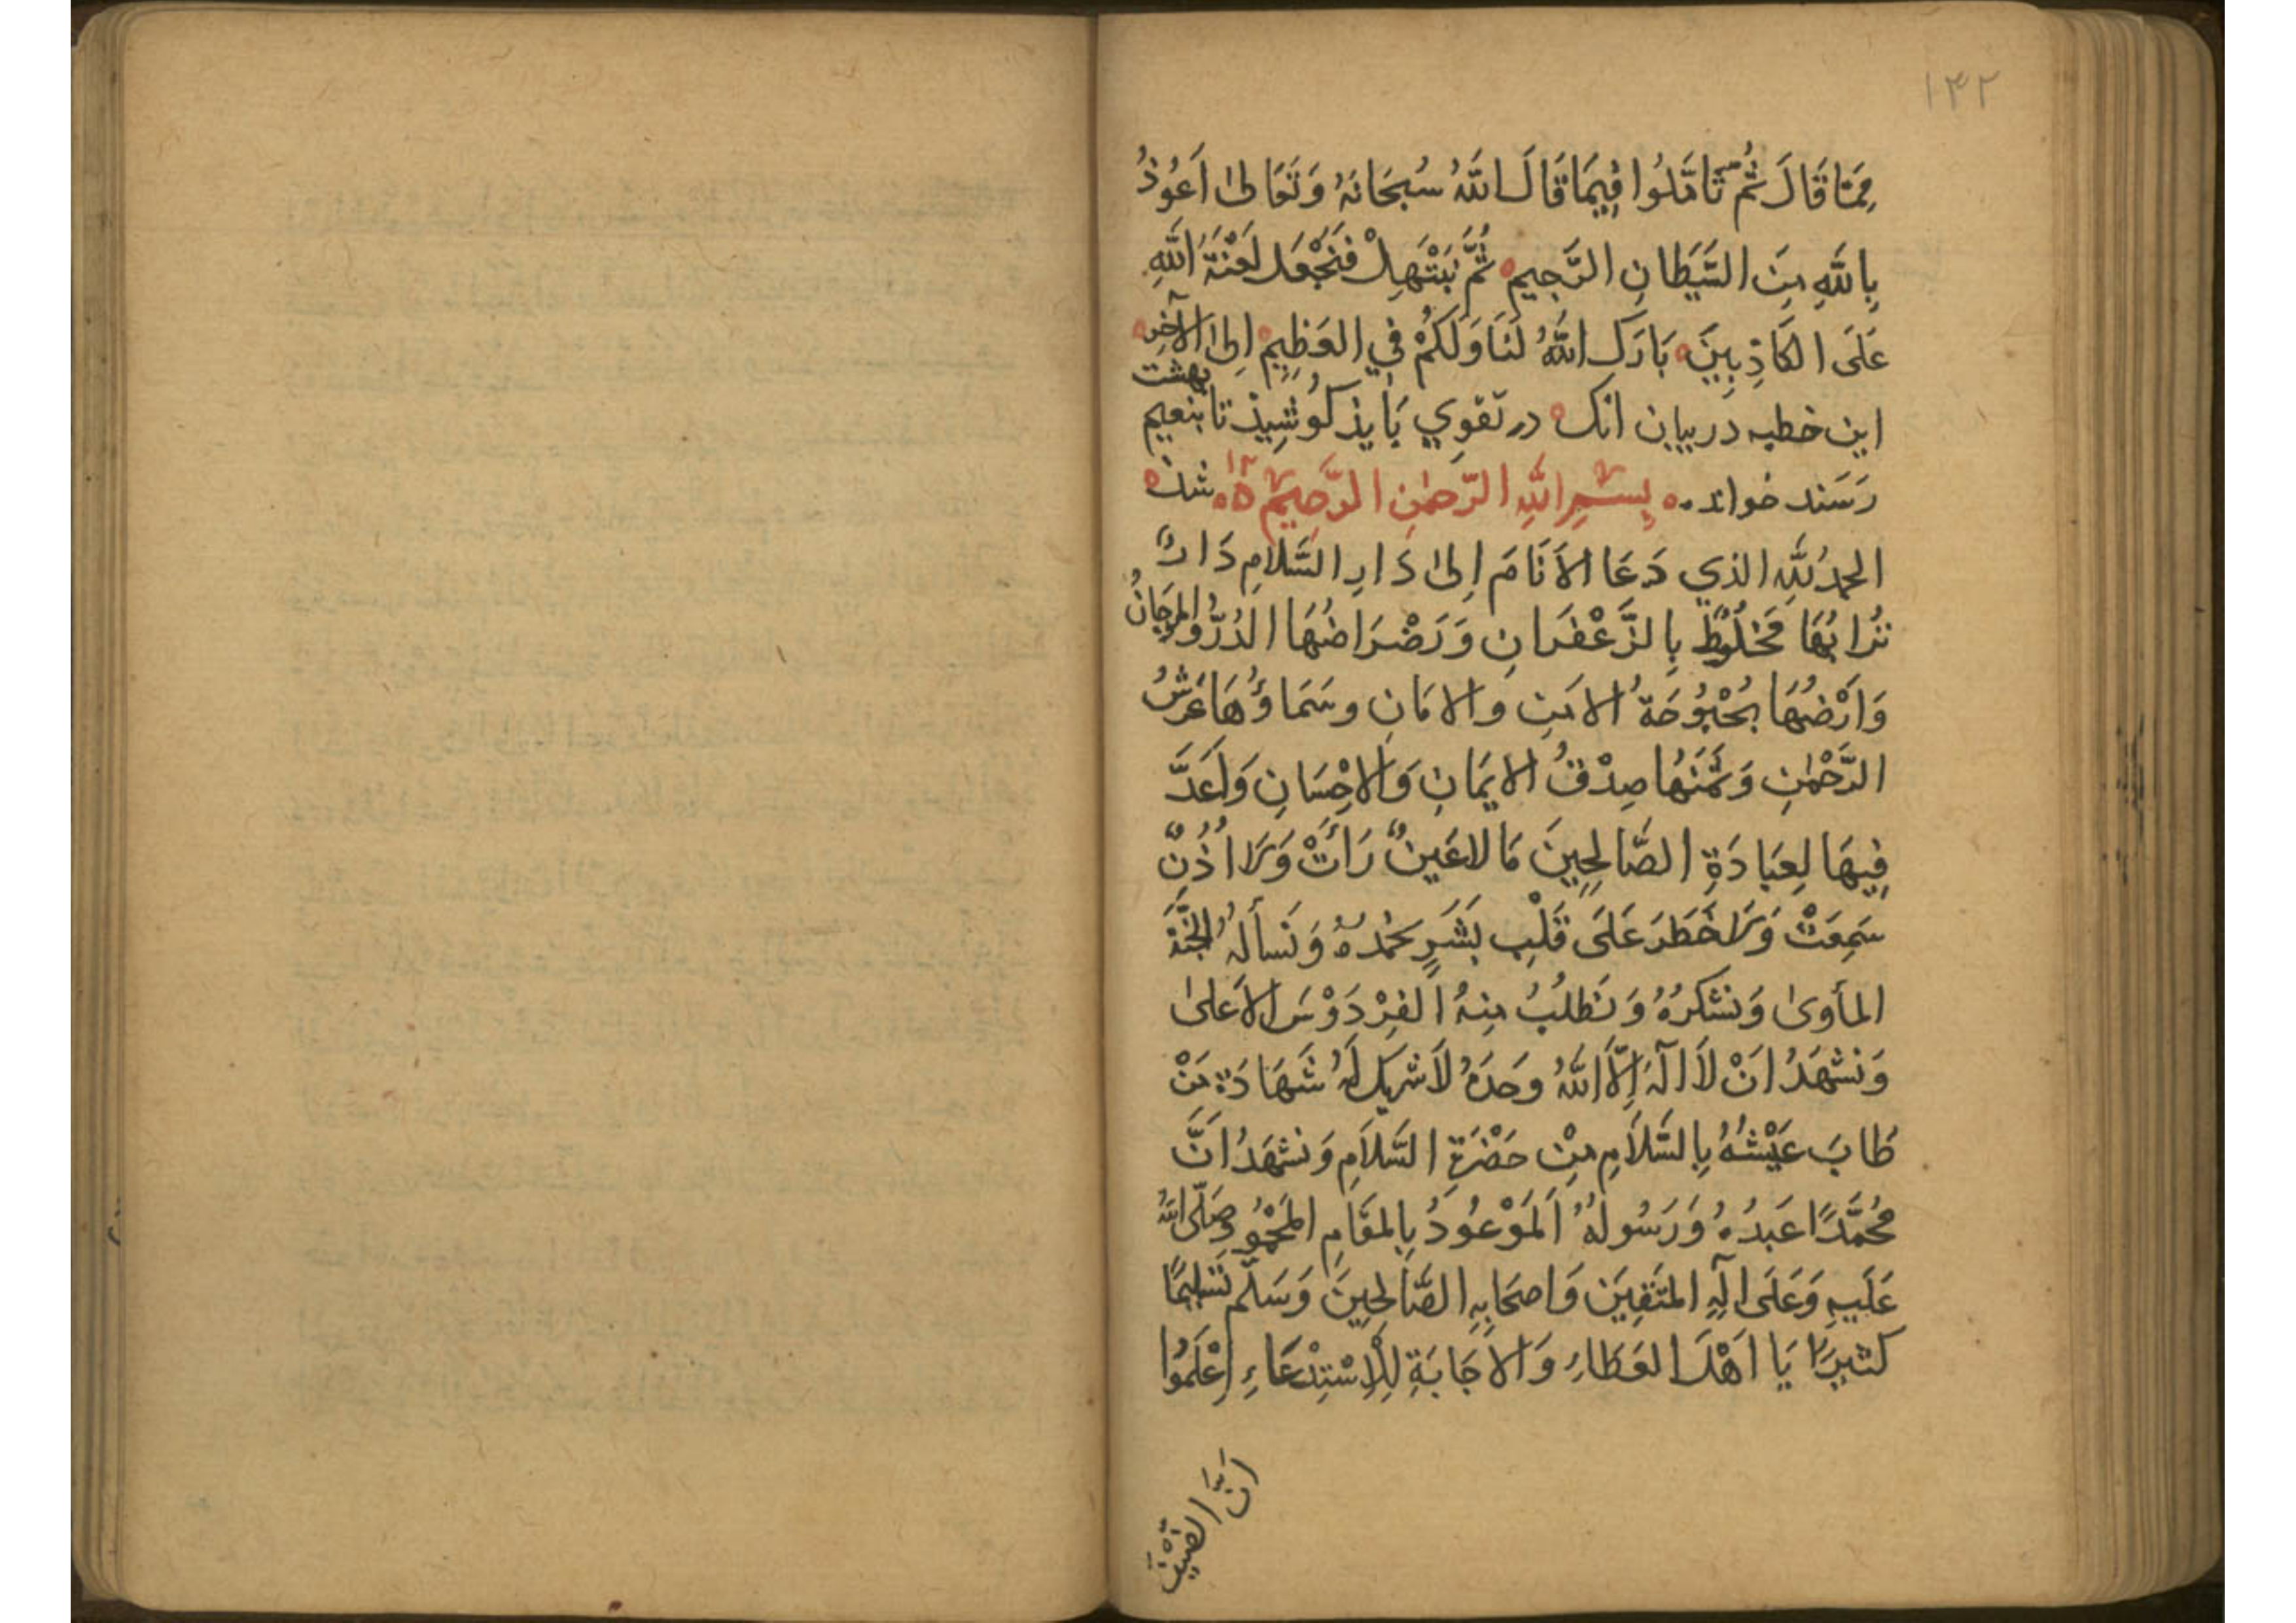 ١٤٢
مِمَّا قَالَ ثُمَّ تَأَمَّلُوا فِيمَا قَالَ اللّٰهُ سُبْحَانَهُ وَتَعَالىٰ اَعُوذُ
بِاللّٰهِ مِنَ الشَّيْطَانِ الرَّجِيمِ ثُمَّ نَبْتَهِلْ فَنَجْعَل لَعْنَةَ اللّٰهِ
عَلَى الكَاذِبِينَ بَارَكَ اللّٰهُ لَنَا وَلَكُمْ فِي العَظِيمِ اِلىٰ الآخِرِ
اين خطبه در بيان انك در تقوي بَايذ كوُشِيذ تا بنعيم بهشت
رَسَند خواند بِسْمِ اللّٰهِ الرَّحمٰنِ الرَّحِيمِ
الحمدُ لِلّٰهِ الذي دَعَا الاَنَامَ اِلىٰ دَارِ السَّلاَمِ دَارٌ
تُرَابُهَا مَخلُوطٌ بِالزَّعْفَرَانِ وَرَضْرَاضُهَا الدُرُّ وَالمرجَانُ
وَاَرْضُهَا بُحْبُوُحَةُ الامنِ والامَانِ وسَمَاؤُهَا عَرْشُ
الرَّحْمٰنِ وَثَمَنُهَا صِدْقُ الايمَانِ وَالاِحْسَانِ وَاَعَدَّ
فِيهَا لِعِبَادَةِ الصَّالِحِينَ مَا لاعَينٌ رَاَتْ وَلاَ اُذُنٌ
سَمِعَتْ وَلاَ خَطَرَ عَلَى قَلْبِ بَشَرٍ نحمْدُهُ وَنَسألهُ الجَنَّةَ
المأوىٰ وَنشكرُهُ وَنَطلُبُ مِنهُ الفِرْدَوْسَ الاَعلىٰ
وَنشهَدُ اَنْ لاَ الَهَ اِلاَّ اللّٰهُ وحَدَهُ لاَ شريكَ لَهُ شَهَادَةَ مَنْ
طَابَ عَيْشُهُ بِالسَّلاَمِ مِنْ حَضْرَةِ السَّلاَمِ وَنشهَدُ اَنَّ
مُحُمَّدًا عَبدُهُ وَرَسُولهُ اَلمَوْعُودُ بِالمقَامِ المَحْمُودِ صَلَّى اللّٰهُ
عَلَيهِ وَعَلَى الِهِ المتَقِينَ وَاصحَابِهِ الصَّالحِينَ وَسَلَّم تَسْلِيمًا
كثيرًا يَا اَهْلَ العَطَاءِ وَالاجَابَةِ لِلاِسْتِدْعَاءِ اِعْلَمُوا
اَنَّ الضَيْفَ